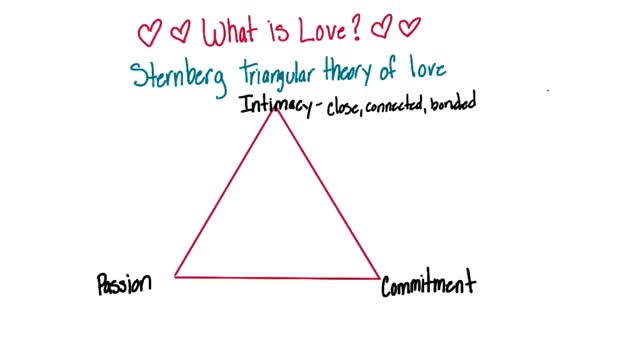 What is Love?
Sternberg Triangular theory of love
Intimacy - close, connected, bonded
Passion
Commitment